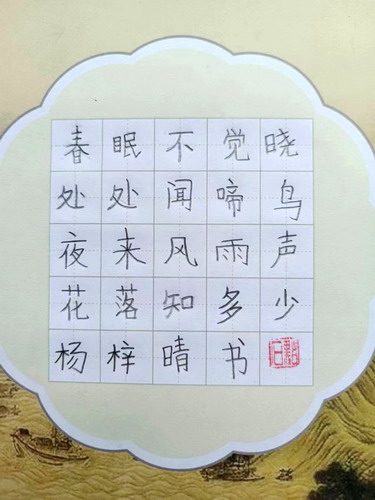 春眠不觉晓
处处闻啼鸟
夜来风雨声
花落知多少
杨梓晴书